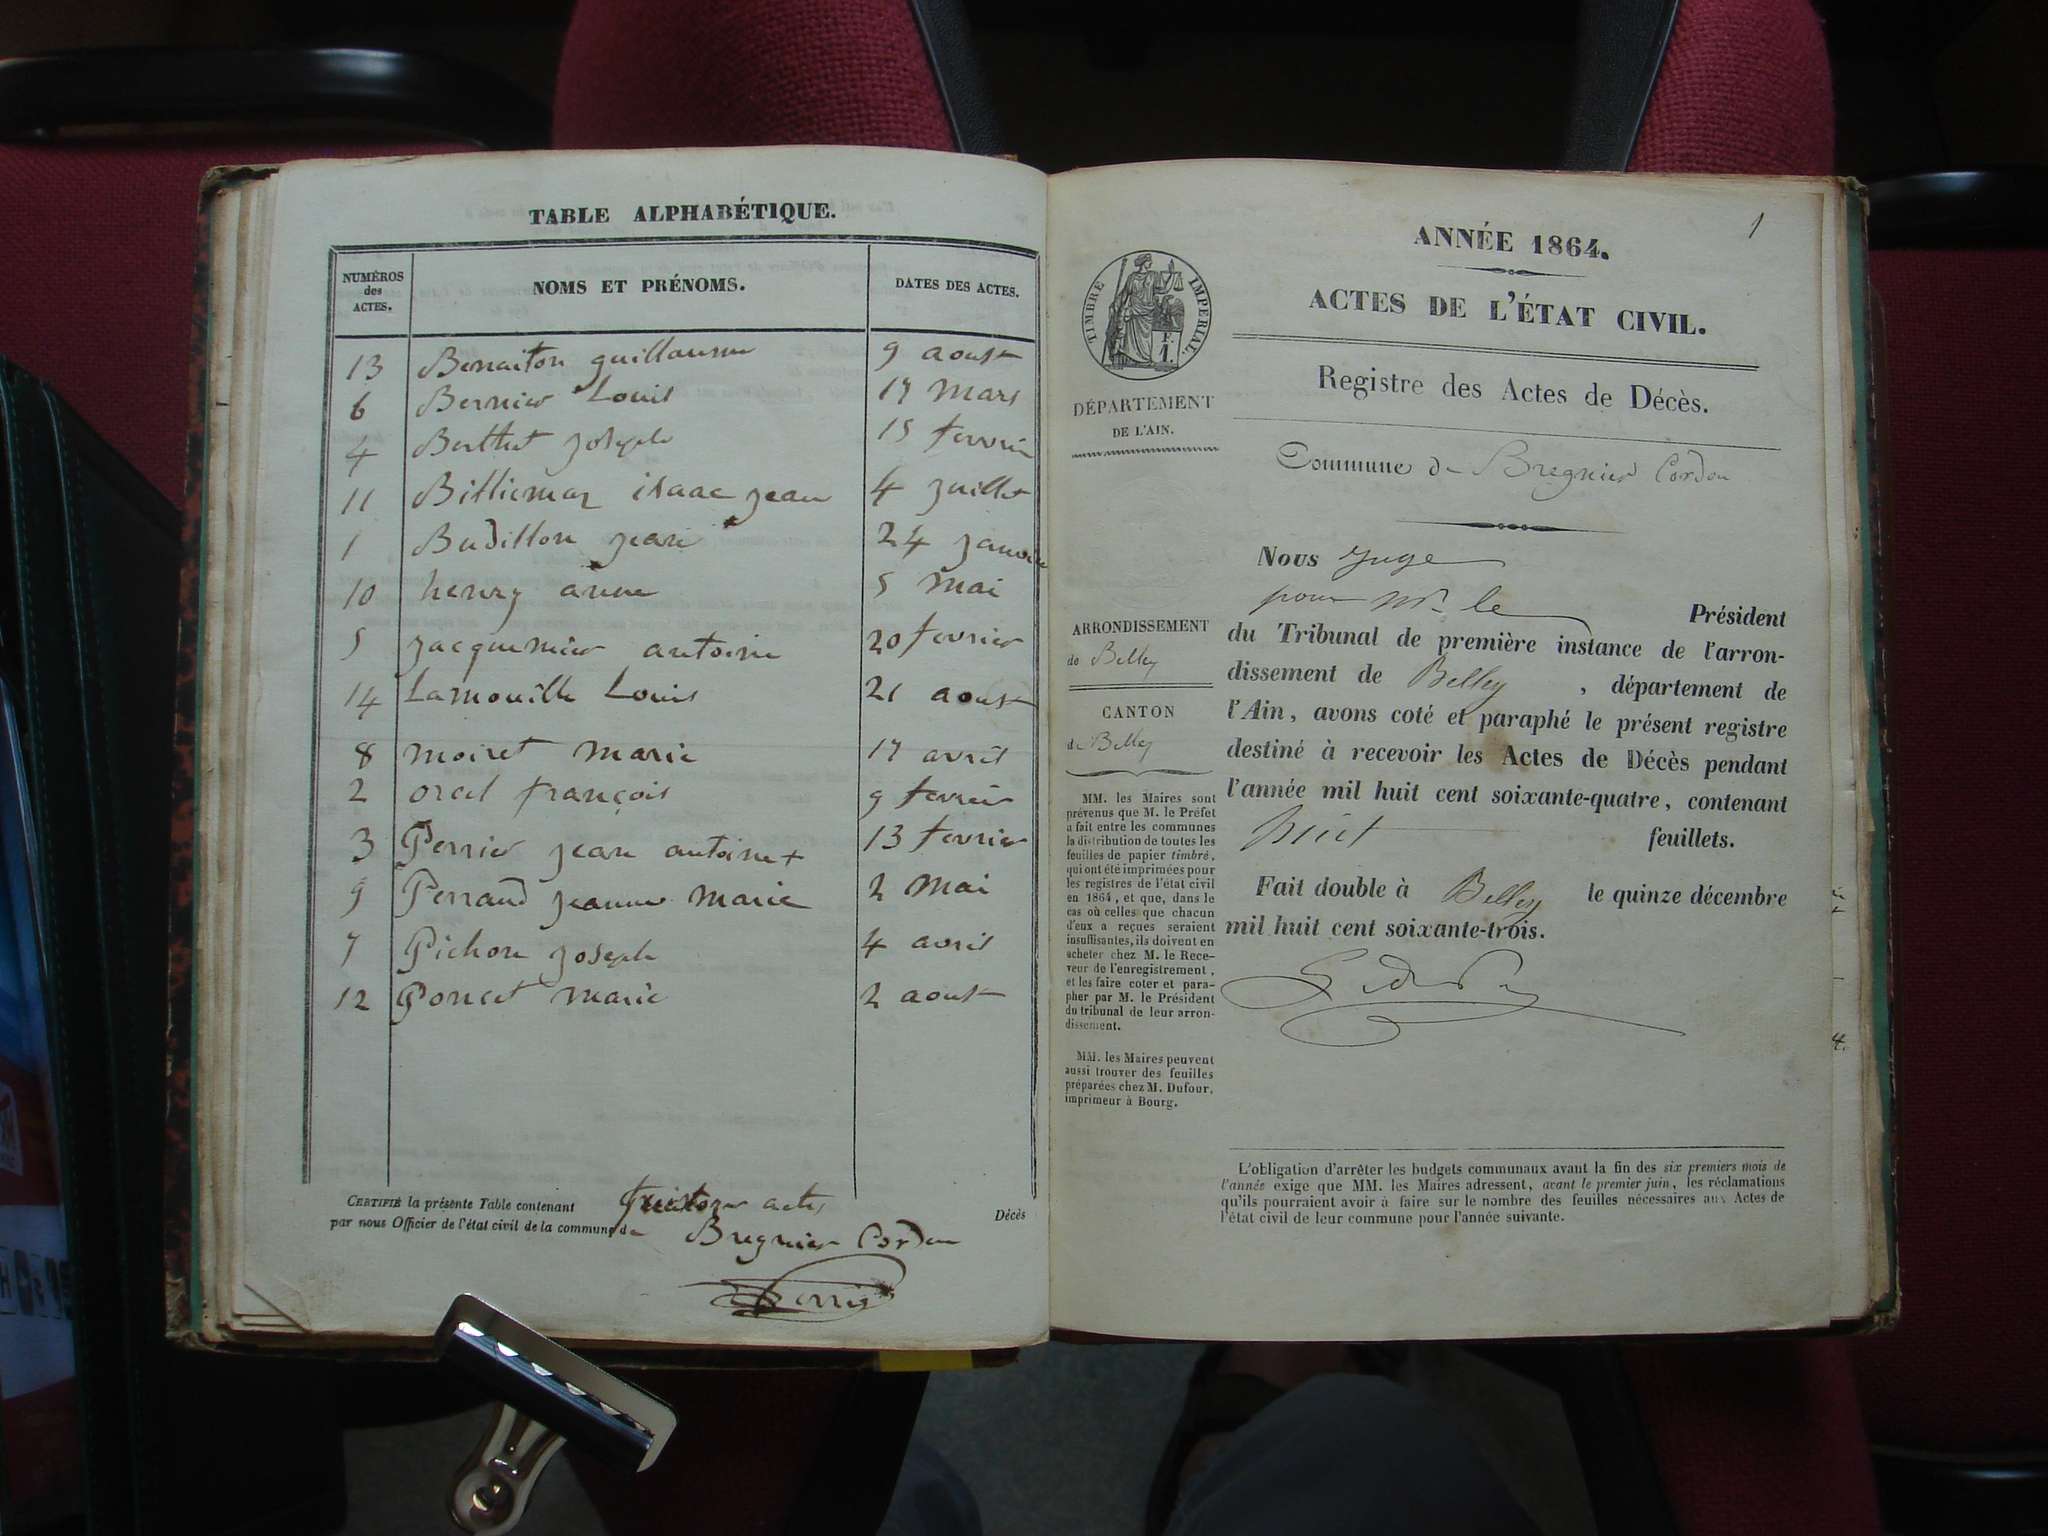 TABLE ALPHABÉTIQUE.
NUMÉROS des ACTES. NOMS ET PRÉNOMS. DATES DES ACTES.
13 Benaiton guillaume 9 aoust
6 Bernier Louis 17 mars
4 Berthet joseph 15 fevrier
11 Billiemaz isaac jean 4 juillet
1 Budillon jean 24 janvier
10 henry anne 5 mai
5 jacquemier antoine 20 fevrier
14 Lamouille Louis 21 aoust
8 moiret marie 17 avril
2 orcel françois 9 fevrier
3 Perrier jean antoine 13 fevrier
9 Perraud jeanne marie 2 mai
7 Pichon joseph 4 avril
12 Poncet marie 2 aoust
CERTIFIÉ la présente Table contenant quatorze actes Décès
par nous Officier de l'état civil de la commune de Bregnier Cordon
1
ANNÉE 1864.
ACTES DE L'ÉTAT CIVIL.
Registre des Actes de Décès.
Commune de Bregnier Cordon
TIMBRE IMPERIAL.
F.
1.
DÉPARTEMENT
DE L'AIN.
ARRONDISSEMENT
de Belley
CANTON
de Belley
MM. les Maires sont
prévenus que M. le Préfet
a fait entre les communes
la distribution de toutes les
feuilles de papier timbré,
qui ont été imprimées pour
les registres de l'état civil
en 1864, et que, dans le
cas où celles que chacun
d'eux a reçues seraient
insuffisantes, ils doivent en
acheter chez M. le Rece-
veur de l'enregistrement,
et les faire coter et para-
pher par M. le Président
du tribunal de leur arron-
dissement.
MM. les Maires peuvent
aussi trouver des feuilles
préparées chez M. Dufour,
imprimeur à Bourg.
Nous Juge
pour Mr le Président
du Tribunal de première instance de l'arron-
dissement de Belley , département de
l'Ain, avons coté et paraphé le présent registre
destiné à recevoir les Actes de Décès pendant
l'année mil huit cent soixante-quatre, contenant
huit feuillets.
Fait double à Belley le quinze décembre
mil huit cent soixante-trois.
L'obligation d'arrêter les budgets communaux avant la fin des six premiers mois de
l'année exige que MM. les Maires adressent, avant le premier juin, les réclamations
qu'ils pourraient avoir à faire sur le nombre des feuilles nécessaires aux Actes de
l'état civil de leur commune pour l'année suivante.